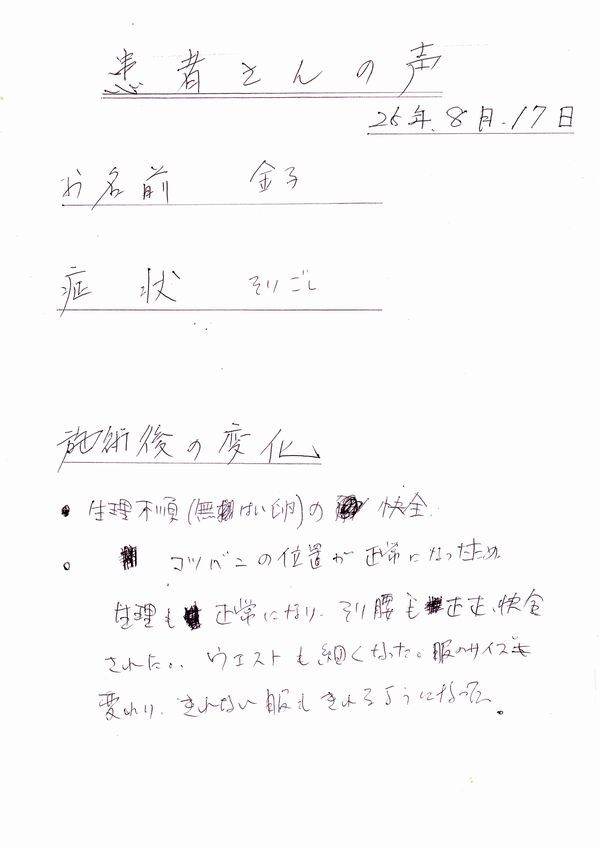 患者さんの声
25年.8月.17日
お名前 金子
症状 そりごし
施術後の変化
• 生理不順(無はい卵)の 快全.
• コツバンの位置が正常になったため
生理も正常になり、そり腰も 快全
された。ウエストも細くなった。服のサイズも
変わり、きれない服もきれるようになった。